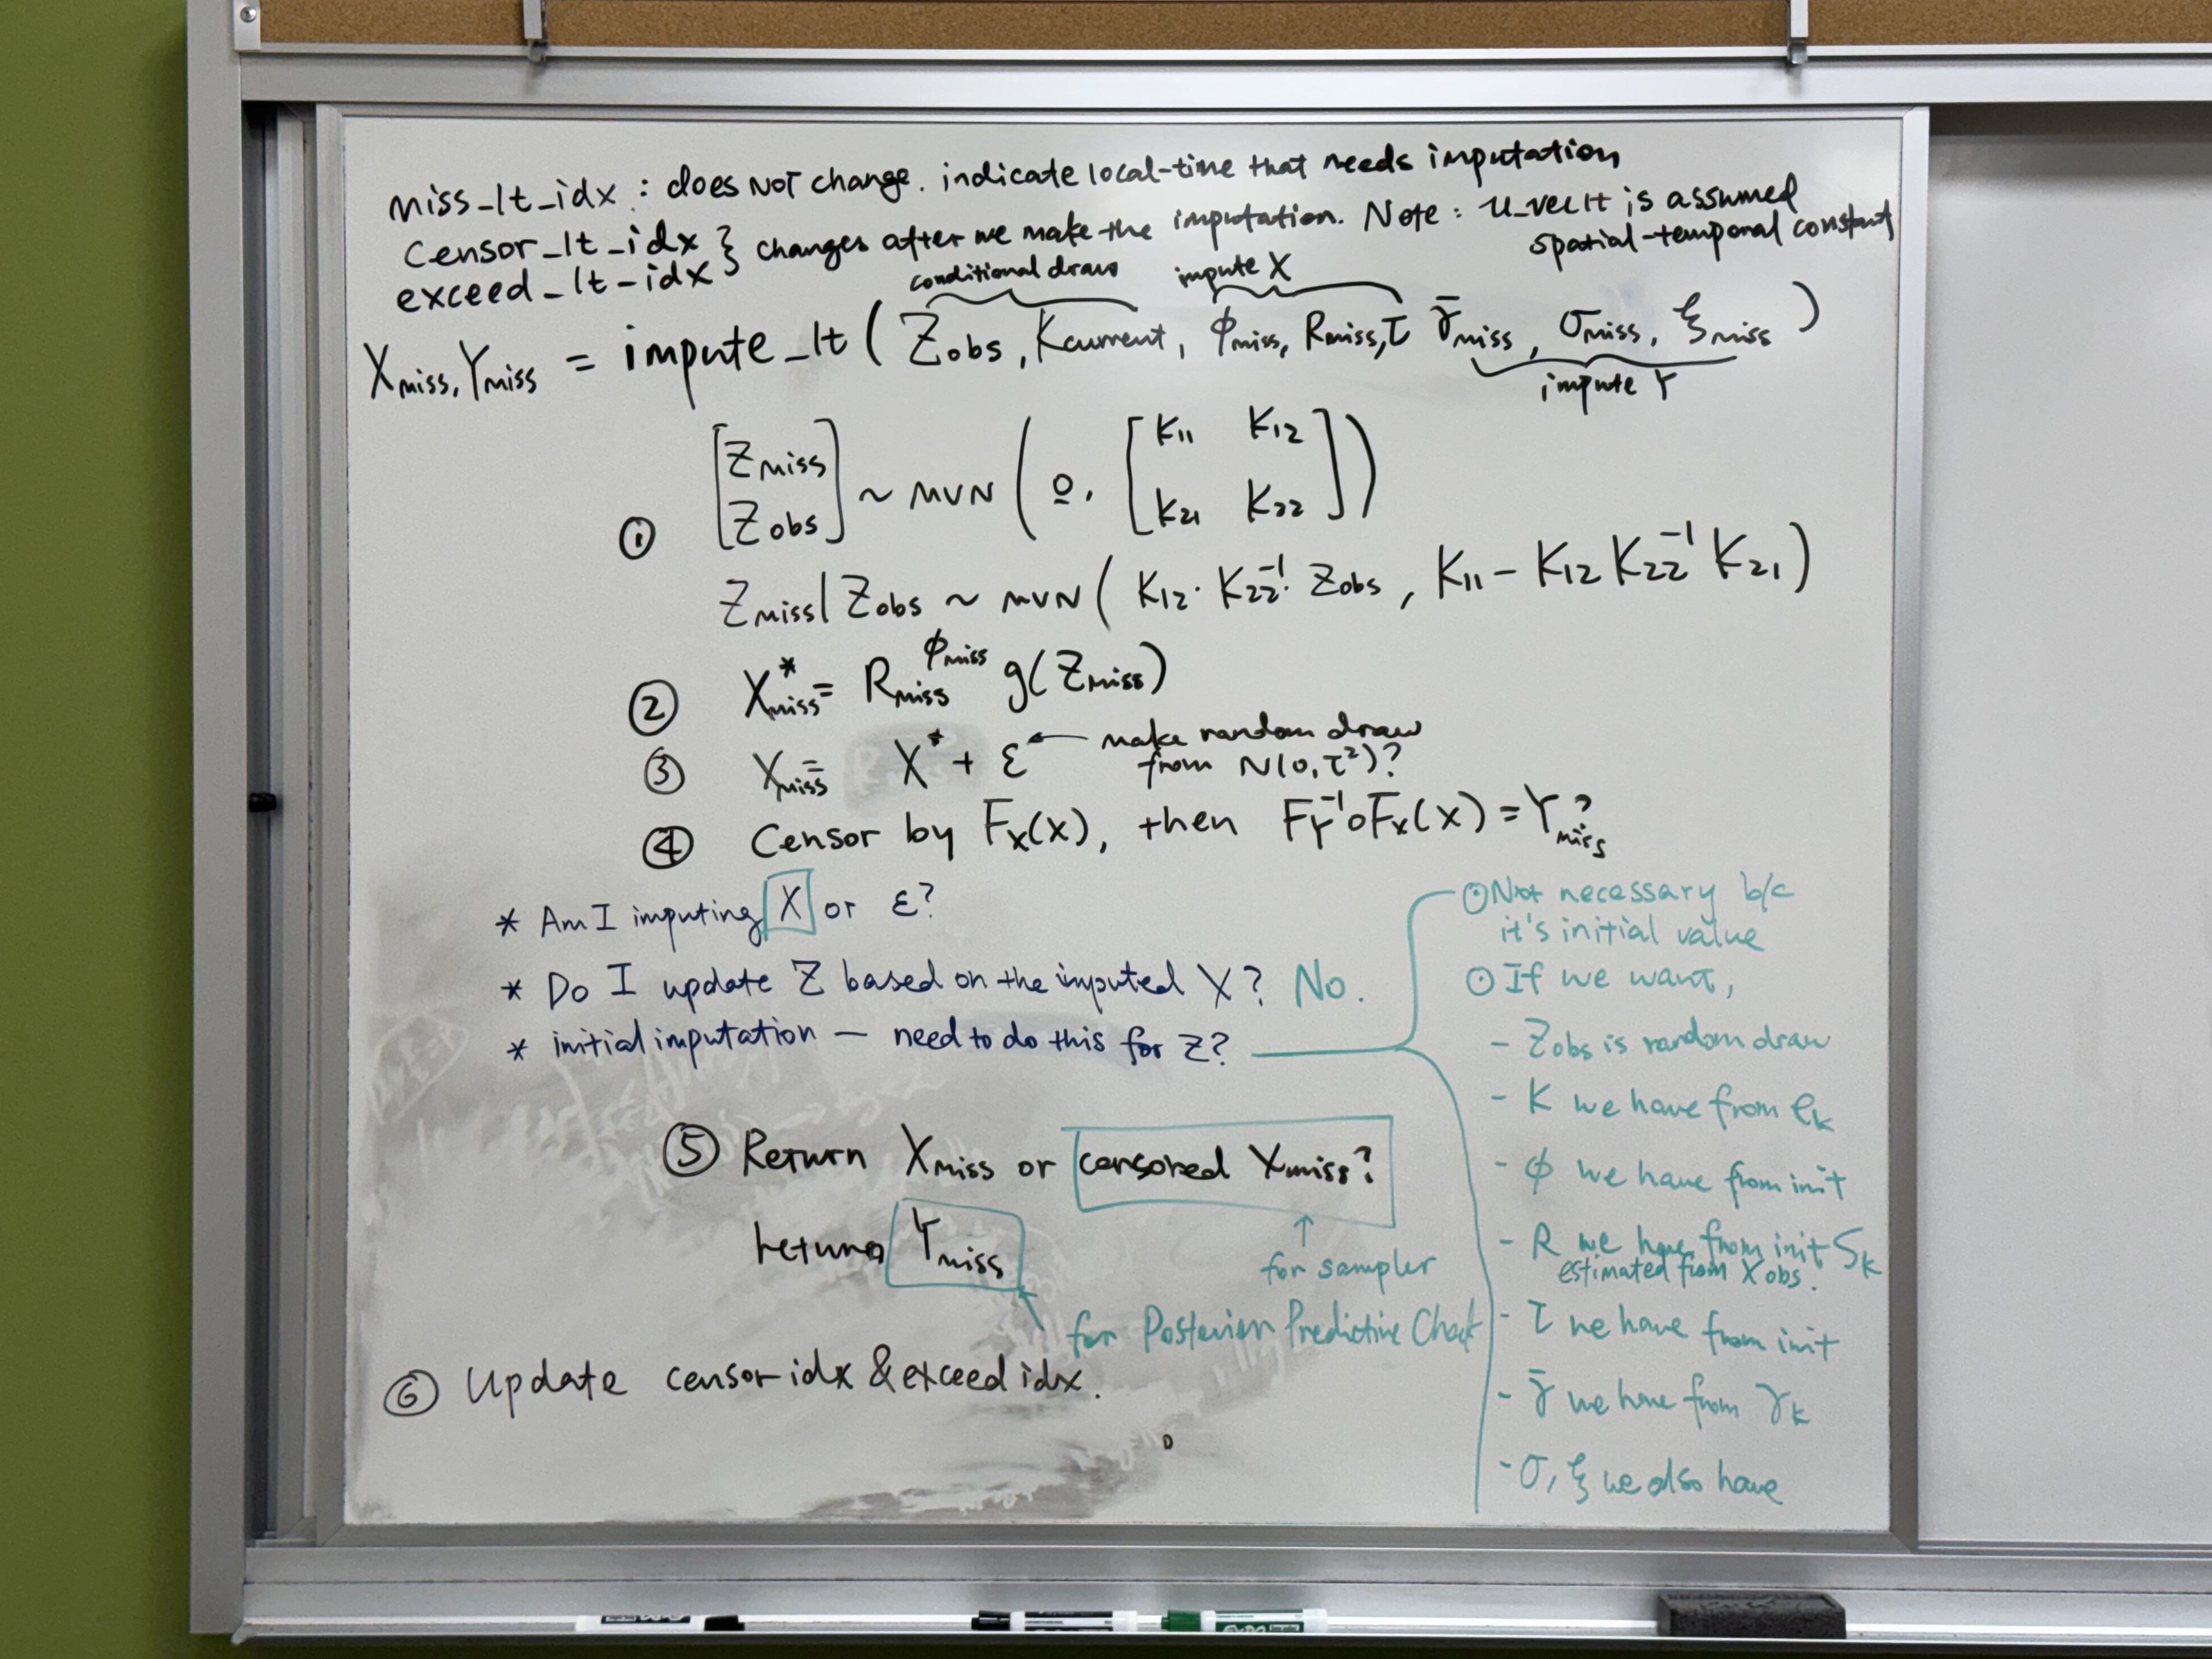 miss_1t_idx : does NOT change. indicate local-time that needs imputation
censor_1t_idx } changes after we make the imputation. Note: u_vec1t is assumed
exceed_1t_idx spatial-temporal constant
conditional draw impute X
X_miss, Y_miss = impute_1t ( Z_obs, K_current, ϕ_miss, R_miss, τ γ̄_miss, σ_miss, ξ_miss )
impute Y
① [Z_miss Z_obs] ~ MVN ( 0, [K_11 K_12 K_21 K_22] )
Z_miss | Z_obs ~ MVN ( K_12 · K_22^-1 · Z_obs, K_11 - K_12 K_22^-1 K_21 )
② X*_miss = R_miss^ϕ_miss g(Z_miss)
③ X_miss = X* + ε ← make random draw
from N(0, τ²)?
④ Censor by F_X(X), then F_Y^-1 ∘ F_X(X) = Y_miss?
* Am I imputing X or ε?
* Do I update Z based on the imputed X? No.
* initial imputation — need to do this for Z?
⊙ Not necessary b/c
it's initial value
⊙ If we want,
- Z_obs is random draw
- K we have from ρ_k
- ϕ we have from init
- R we have from init S_k
estimated from X_obs.
- τ we have from init
- γ̄ we have from γ_k
- σ, ξ we also have
⑤ Return X_miss or censored X_miss?
return Y_miss
↑
for sampler
for Posterior Predictive Check
⑥ Update censor idx & exceed idx.